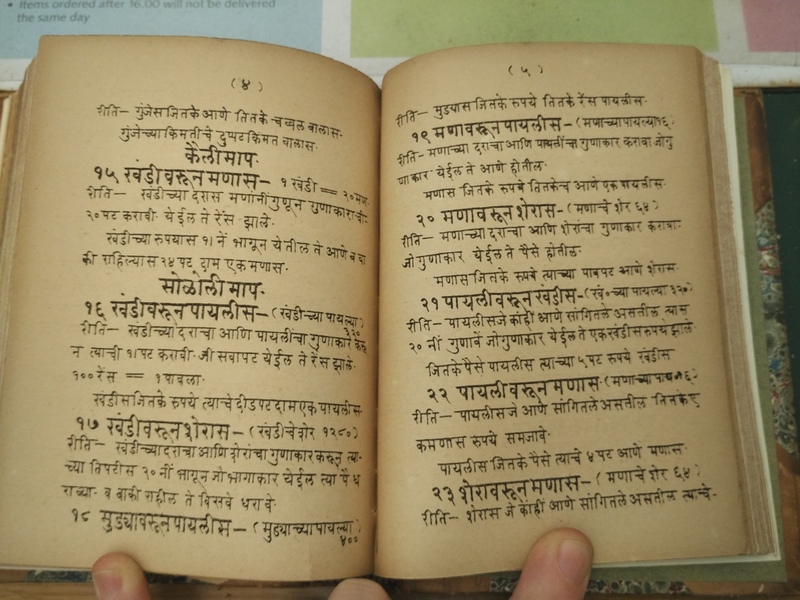 • Items ordered after 16.00 will not be delivered
the same day
(४)
रीति— गुंजेस जितके आणे तितके चव्वल वालास.
गुंजेच्या किमतीचे दुप्पट किमत वालास.
कैलीमाप.
१५ खंडीवरून मणास— १ खंडी == २० मण.
रीति— खंडीच्या दरास मणांनीं गुणून गुणाकाराची
२० पट करावी. येईल ते रेंस झाले.
खंडीच्या रुपयास १। नें भागून येतील ते आणे व बा
की राहिल्यास २४ पट दाम एक मणास.
सोळोली माप.
१६ खंडीवरून पायलीस—(खंडीच्या पायल्या)
३२०
रीति— खंडीच्या दराचा आणि पायलींचा गुणाकार करू
न त्याची १। पट करावी. जी सवापट येईल ते रेंस झाले.
१०० रेंस == १ पावला.
खंडीस जितके रुपये त्याचे दीडपट दाम एक पायलीस.
१७ खंडीवरून शेरास— (खंडीचे शेर १२८०)
रीति— खंडीच्या दराचा आणि शेरांचा गुणाकार करून त्या
च्या तिपटीस २० नीं भागून जो भागाकार येईल त्या पै ध
राव्या. व बाकी राहील ते विसवे धरावे.
१८ मुड्यावरून पायलीस—(मुड्याच्या पायल्या)
४००
(५)
रीति— मुड्यास जितके रुपये तितके रेंस पायलीस.
१९ मणावरून पायलीस—(मणाच्या पायल्या १६)
रीति— मणाच्या दराचा आणि पायलींचा गुणाकार करावा जो गु
णाकार येईल ते आणे होतील.
मणास जितके रुपये तितकेच आणे एक पायलीस.
२० मणावरून शेरास—(मणाचे शेर ६४)
रीति— मणाच्या दराचा आणि शेरांचा गुणाकार करावा.
जो गुणाकार येईल ते पैसे होतील.
मणास जितके रुपये त्याच्या पावपट आणे शेरास.
२१ पायलीवरून खंडीस—(खं॰च्या पायल्या ३२०)
रीति— पायलीस जे कांहीं आणे सांगितले असतील त्यास
२० नीं गुणावें जो गुणाकार येईल ते एक खंडीस रुपये झाले.
जितके पैसे पायलीस त्याच्या ५ पट रुपये खंडीस
२२ पायलीवरून मणास.(मणाच्या पायल्या १६)
रीति— पायलीस जे आणे सांगितले असतील तितके ए
कमणास रुपये समजावे.
पायलीस जितके पैसे त्याचे ४ पट आणे मणास.
२३ शेरावरून मणास—(मणाचे शेर ६४)
रीति— शेरास जे कांहीं आणे सांगितले असतील त्याचे-